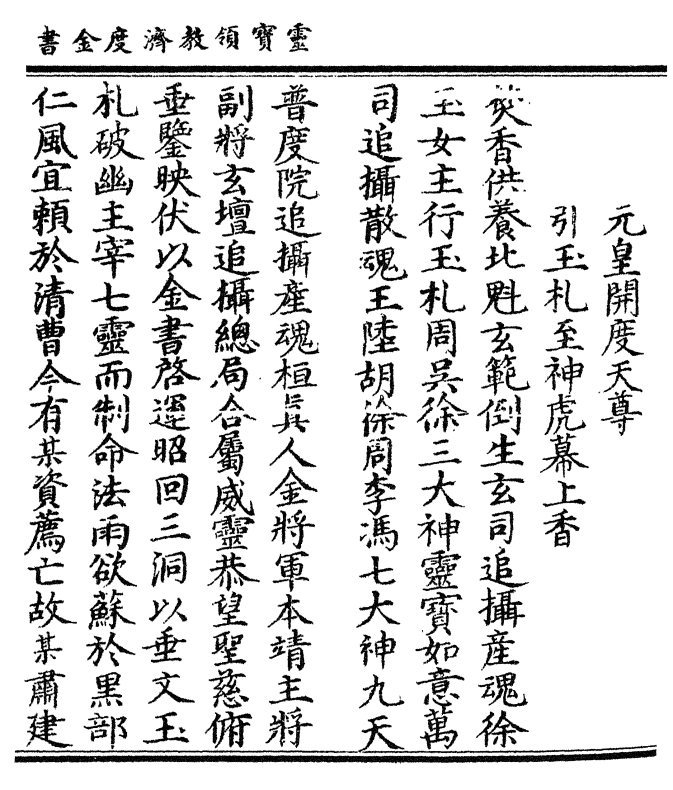 靈寶領教濟度金書
元皇開度天尊
引玉札至神虎幕上香
焚香供養北魁玄範倒生玄司追攝産魂徐
玉女主行玉札周吳徐三大神靈寶如意萬
司追攝散魂王陸胡涂周李馮七大神九天
普度院追攝産魂桓真人金將軍本靖主將
副將玄壇追攝總局合屬威靈恭望聖慈俯
垂鑒映伏以金書啓運昭回三洞以垂文玉
札破幽主宰七靈而制命法雨欲蘇於黒部
仁風宜頼於清曹今有某資薦亡故某肅建